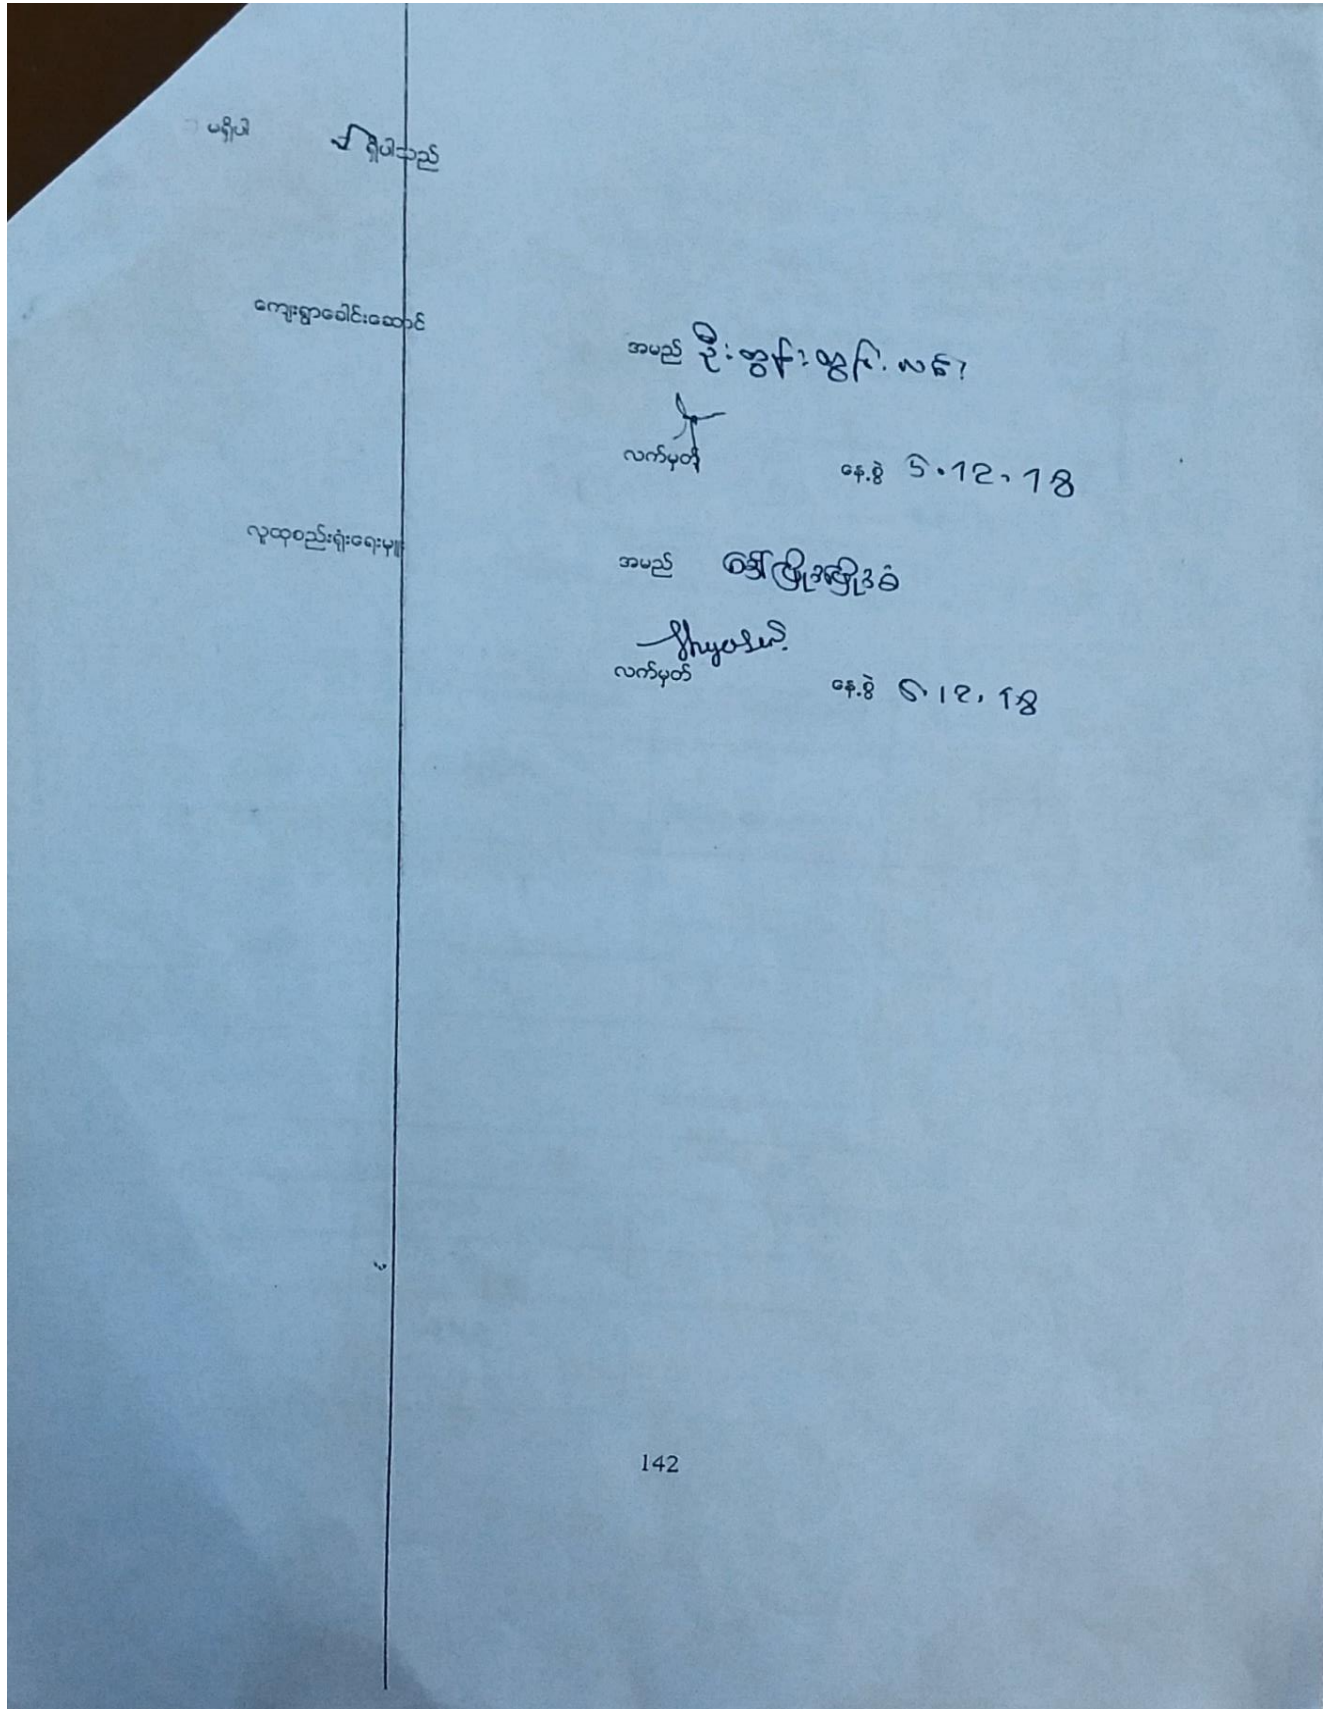 မရှိပါ ရှိပါသည်
ကျေးရွာခေါင်းဆောင်
အမည် ဦးထွန်းထွန်းလင်း
လက်မှတ် နေ့စွဲ 5.12.18
လူထုစည်းရုံးရေးမှူး
အမည် ဒေါ်ဖြိုးဖြိုး
လက်မှတ် နေ့စွဲ 5.12.18
142